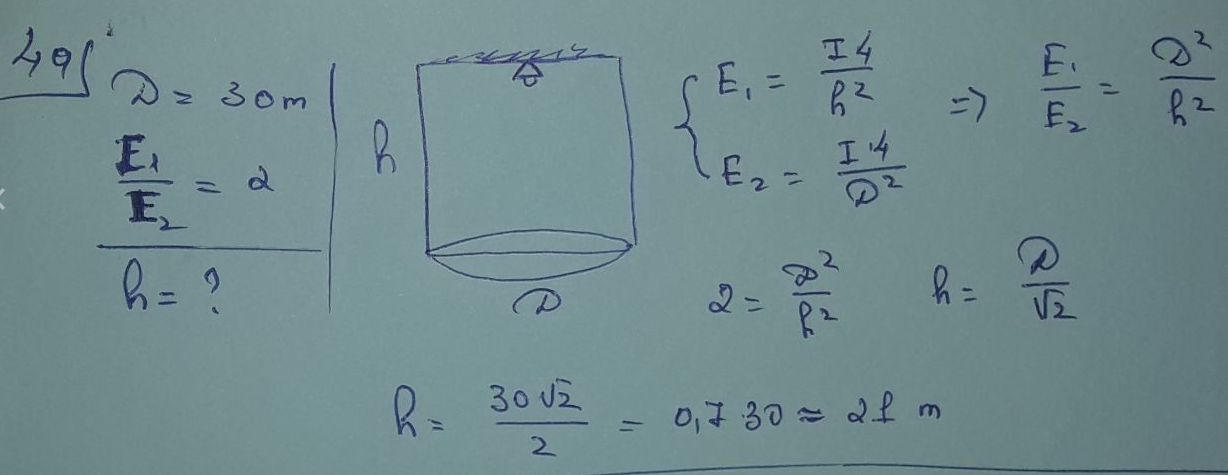 49
D = 30 m
E₁/E₂ = 2
h = ?
h
D
E₁ = I4/h²
E₂ = I·4/D²
=> E₁/E₂ = D²/h²
2 = D²/h²
h = D/√2
h = 30√2/2 = 0,7·30 ≈ 21 m